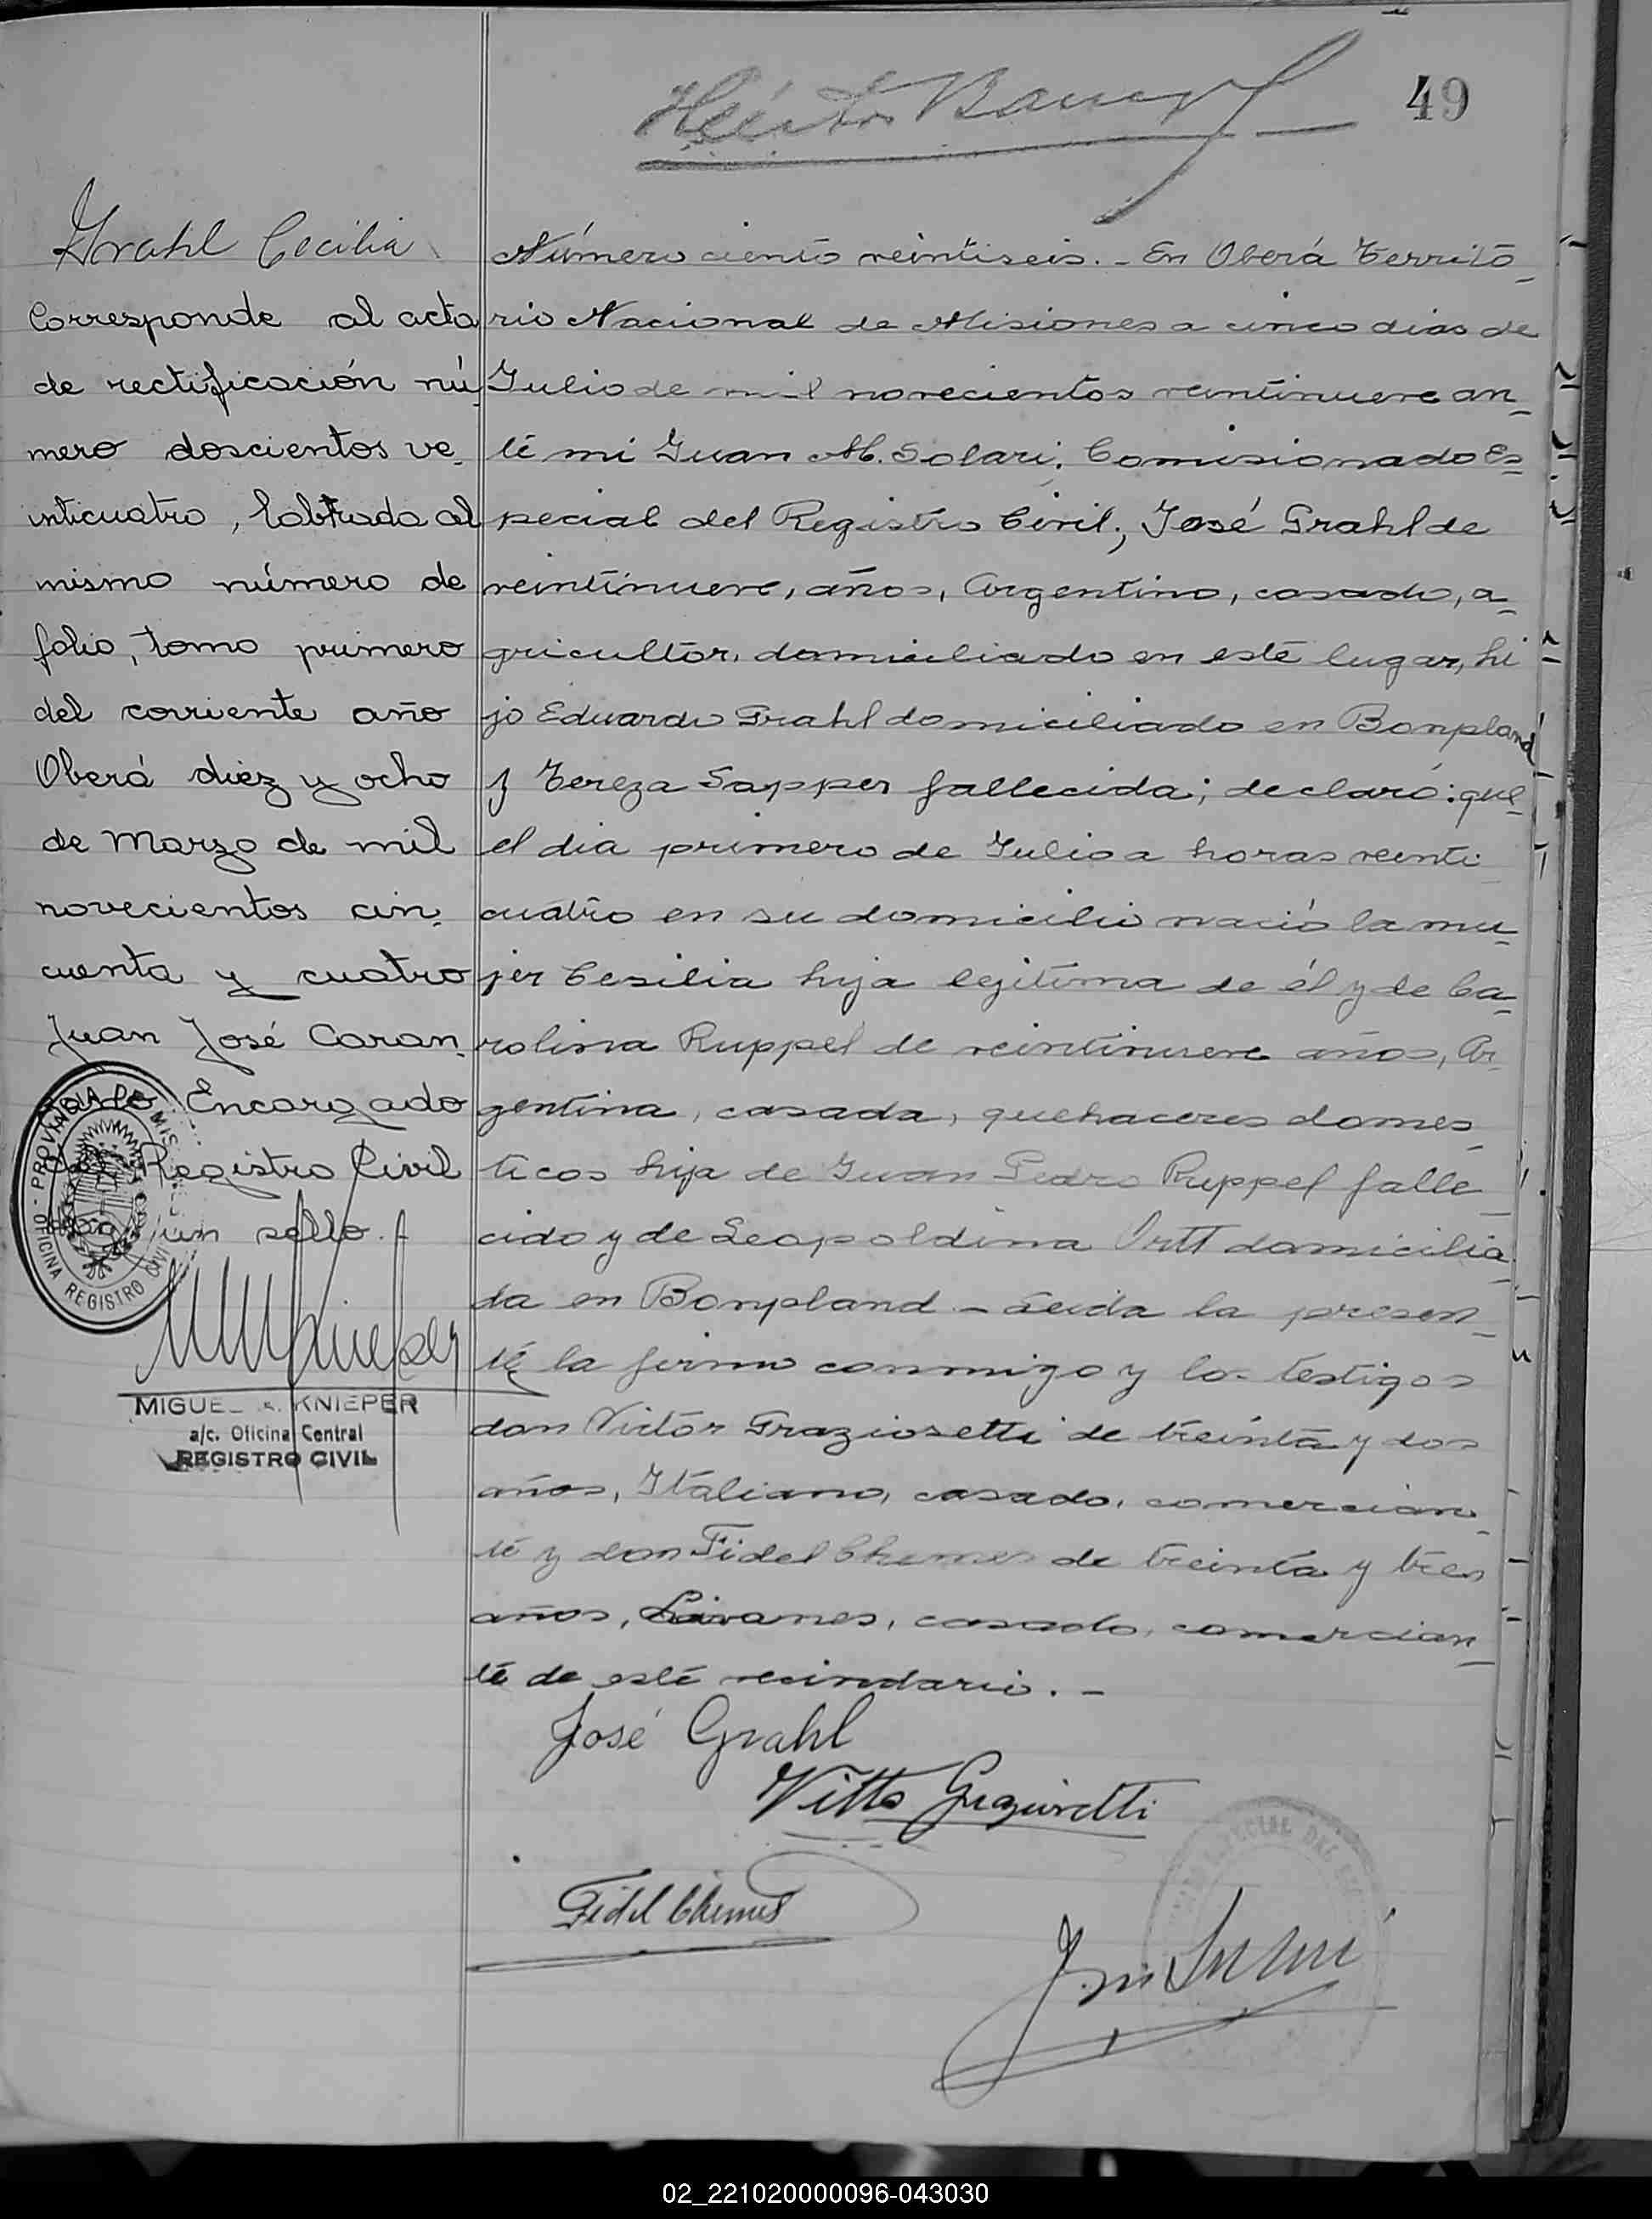 49
Grahl Cecilia
Corresponde al acta
de rectificación nú-
mero doscientos ve-
inticuatro, labrada al
mismo número de
folio, tomo primero
del corriente año
Oberá diez y ocho
de Marzo de mil
novecientos cin-
cuenta y cuatro
Juan José Caran-
Encargado
del Registro Civil
hay un sello.-
PROVINCIA DE MIS
OFICINA REGISTRO CIVI
MIGUEL A. KNIEPER
a/c. Oficina Central
REGISTRO CIVIL
Número ciento veintiseis.- En Oberá Territo-
rio Nacional de Misiones a cinco dias de
Julio de mil novecientos veintinueve an-
te mi Juan M. Solari, Comisionado Es-
pecial del Registro Civil; José Grahl de
veintinueve, años, Argentino, casado, a-
gricultor, domiciliado en este lugar, hi
jo Eduardo Grahl domiciliado en Bonpland
y Tereza Sapper fallecida; declaró: que-
el dia primero de Julio a horas veinti-
cuatro en su domicilio nació la mu-
jer Cesilia hija legitima de él y de Ca-
rolina Ruppel de veintinueve años, Ar-
gentina, casada, quehaceres domes-
ticos hija de Juan Pedro Ruppel falle-
cido y de Leopoldina Ortt domicilia-
da en Bonpland - Leida la presen-
te la firma conmigo y los testigos
don Victor Graziosetti de treinta y dos
años, Italiano, casado, comercian-
te y don Fidel Chemes de treinta y tres
años, Livanes, casado, comercian-
te de este vecindario.-
José Grahl
Vitto Graziosetti
Fidel Chemes
02_221020000096-043030